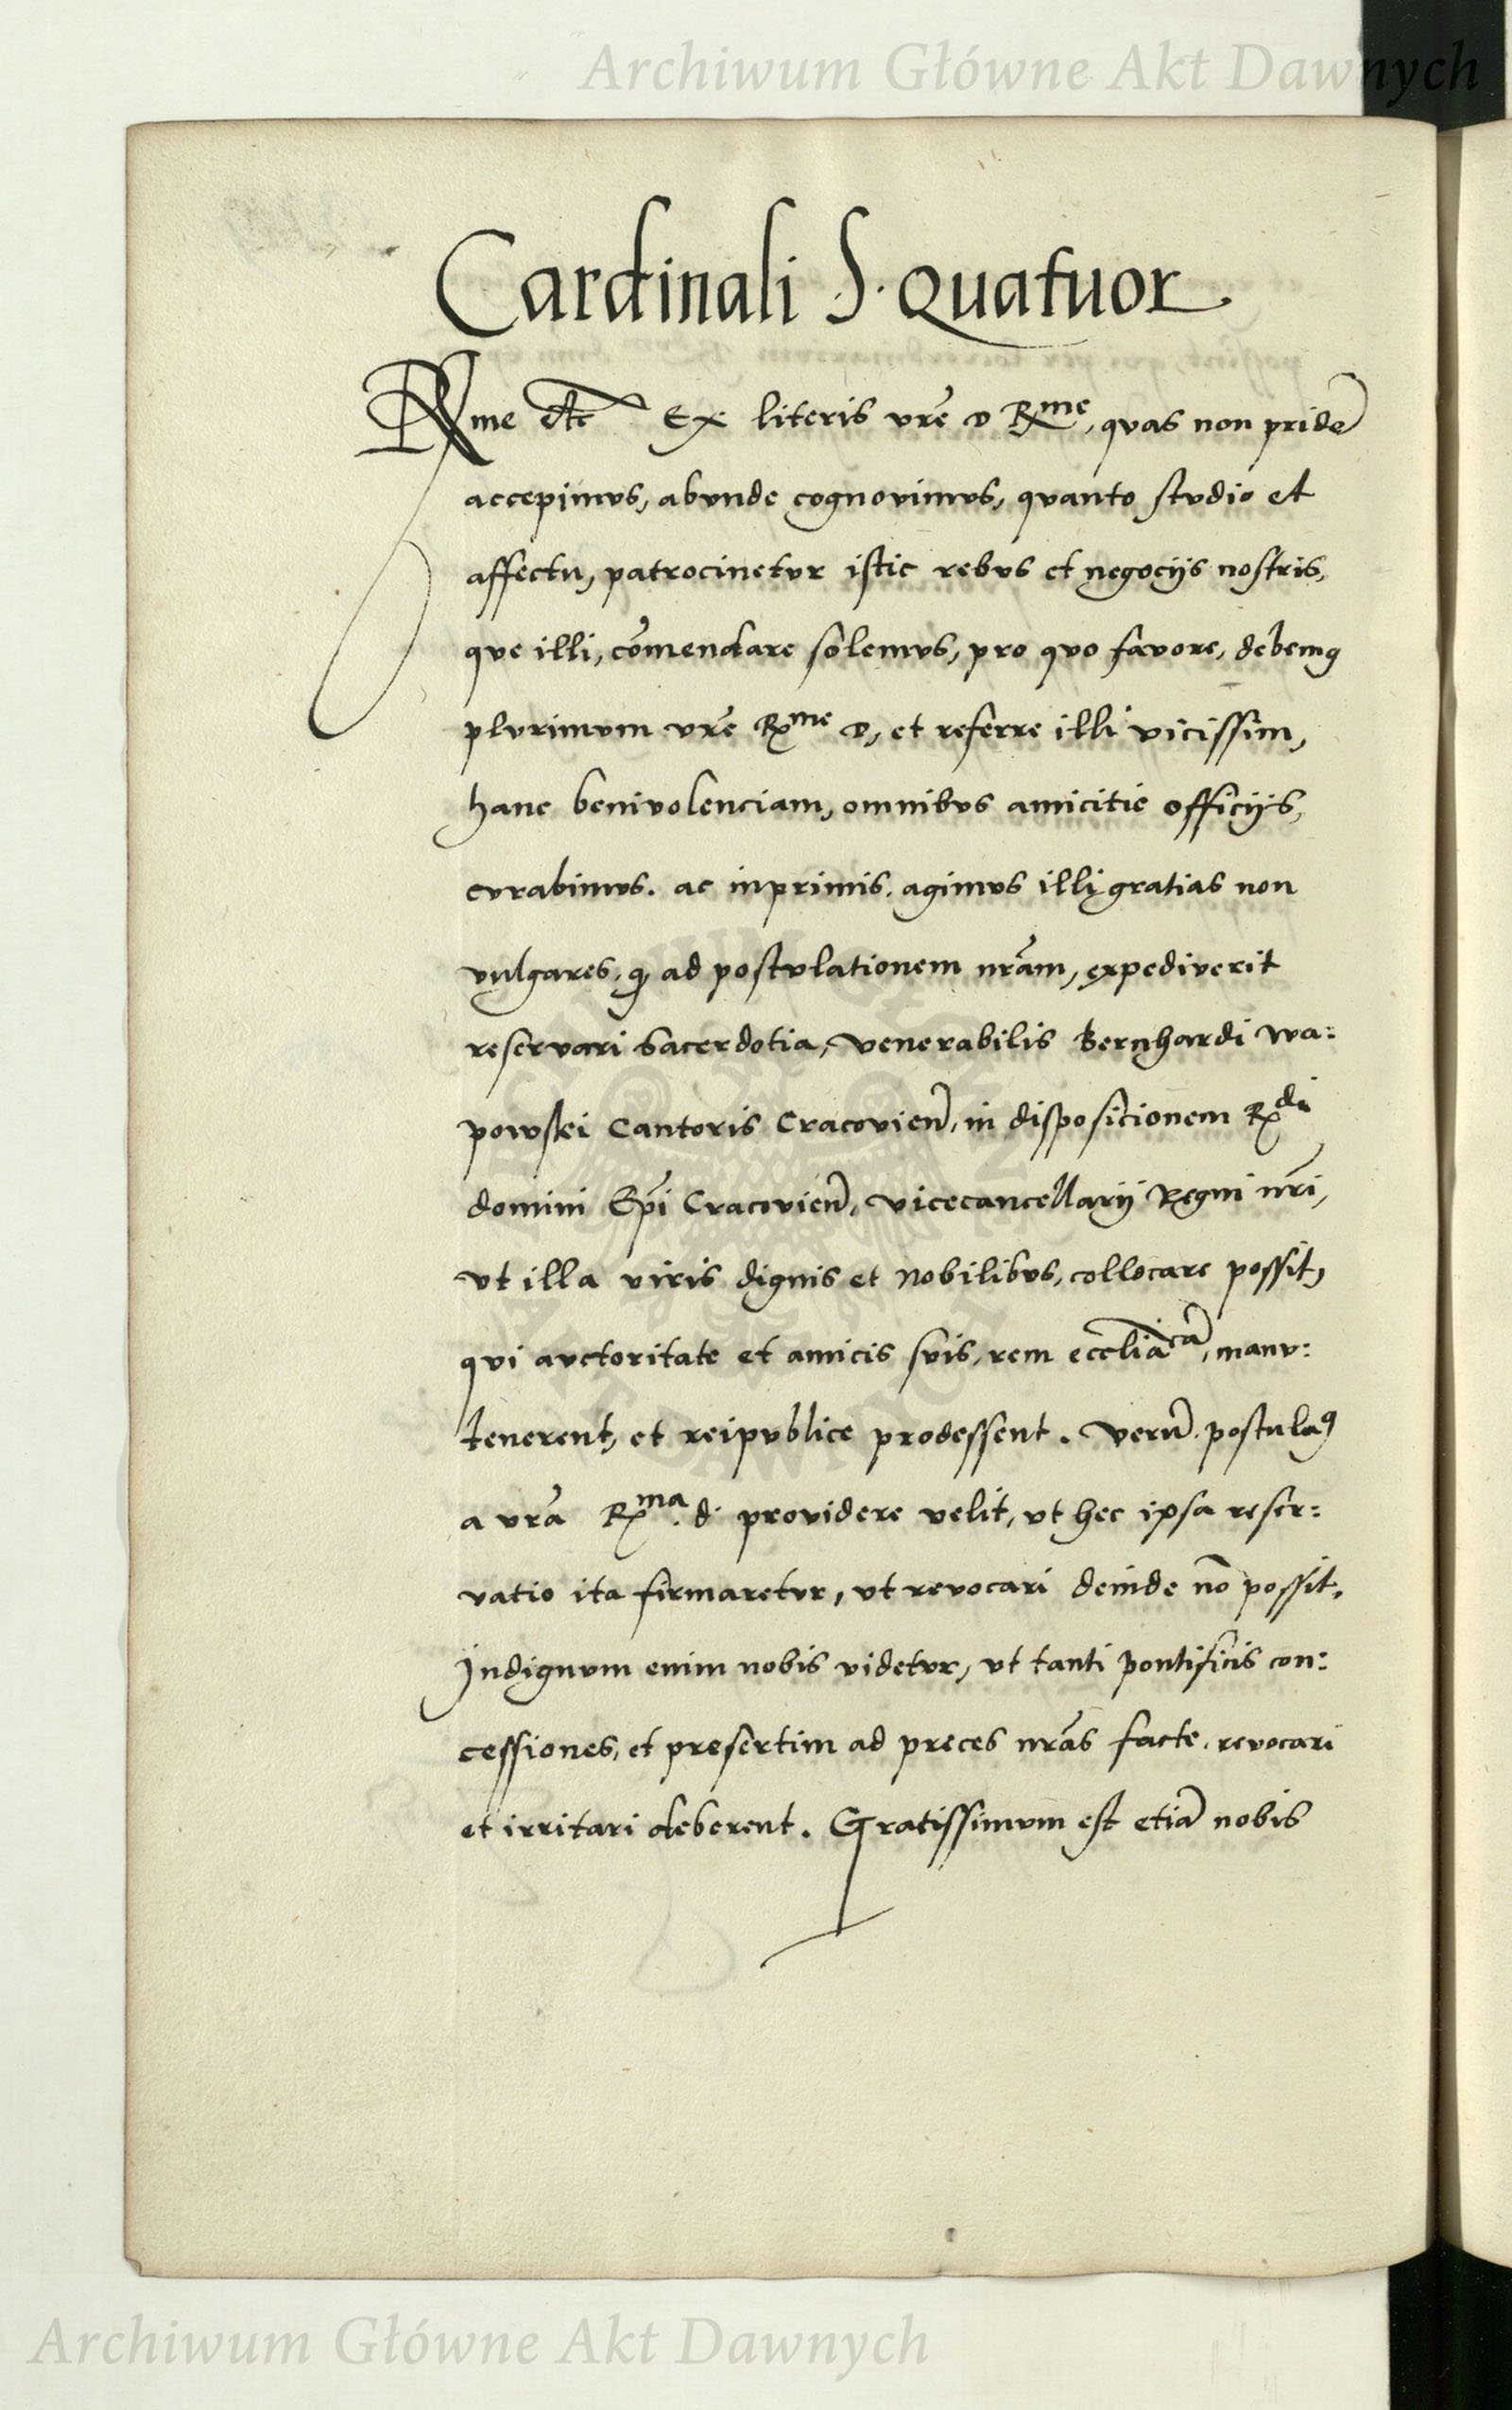 Archiwum Główne Akt Dawnych
Cardinali S. quatuor
Rme etc Ex literis vr̃e D Rxme, quas non pridē
accepimus, abunde cognovimus, quanto studio et
affectu, patrocinetur istic rebus et negocijs nostris,
que illi, cōmendare solemus, pro quo favore, debemꝰ
plurimum vr̃e Rxme D, et referre illi vicissim,
hanc benivolenciam, omnibus amicitie officijs,
curabimus. ac inprimis, agimus illi gratias non
vulgares, ꝙ ad postulationem nr̃am, expediverit
reservari sacerdotia, venerabilis Bernhardi Wa:
powski Cantoris Cracovien̄, in disposicionem Rxdi
domini Ep̃i Cracovien̄, vicecancellarij Regni nr̃i,
ut illa viris dignis et nobilibus, collocare possit,
qui auctoritate et amicis suis, rem eccl̃iaꝫcā, manu:
tenerent, et reipublice prodessent. Verū postulaꝰ
a vr̃a Rxma d. providere velit, ut hec ipsa reser:
vatio ita firmaretur, ut revocari deinde nō possit.
Indignum enim nobis videtur, ut tanti pontificis con:
cessiones, et presertim ad preces nr̃as facte, revocari
et irritari deberent. Gratissimum est etiā nobis
Archiwum Główne Akt Dawnych